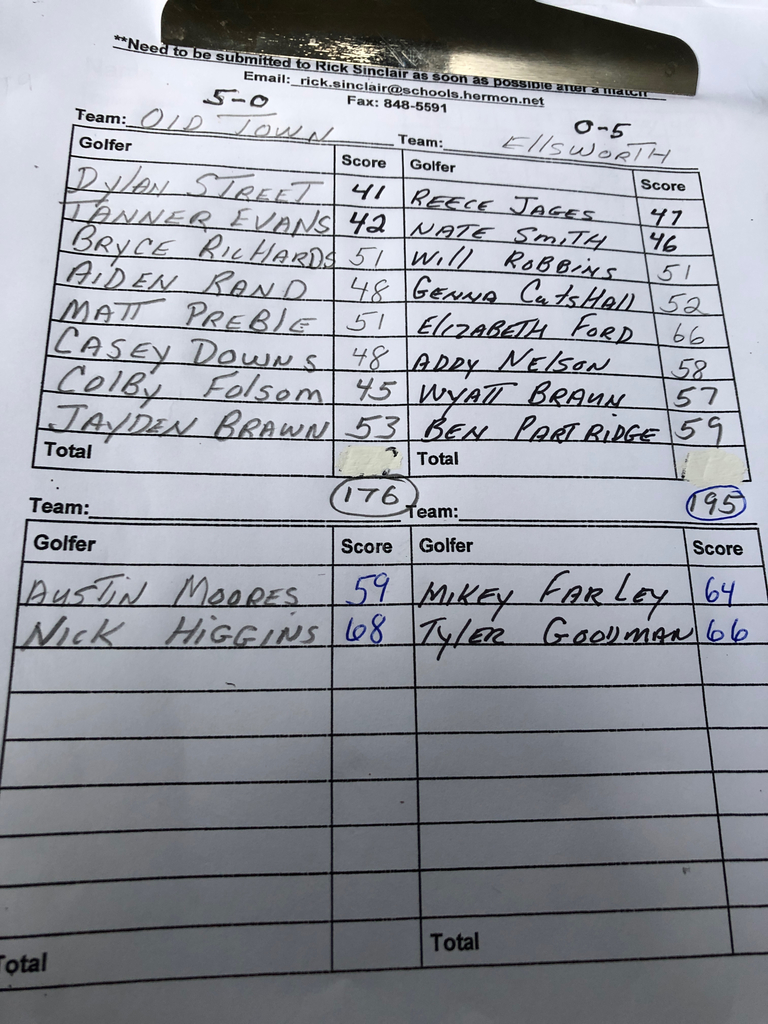 **Need to be submitted to Rick Sinclair as soon as possible after a match
Email: rick.sinclair@schools.hermon.net
Fax: 848-5591
5-0 0-5
Team: OLD TOWN Team: EllSWORTH
Golfer Score Golfer Score
DylAN STREET 41 REECE JAGES 47
TANNER EVANS 42 NATE SmiTH 46
BRYCE RICHARDS 51 Will ROBBINS 51
AIDEN RAND 48 GENNA CutsHall 52
MATT PREBLE 51 ElizABETH FORD 66
CASEY DOWNS 48 ADDY NELSON 58
ColBy Folsom 45 WYATT BRAUN 57
JAYDEN BRAWN 53 BEN PARTRIDGE 59
Total Total
176 195
Team: Team:
Golfer Score Golfer Score
AUSTIN MOORES 59 MIKEY FARLEY 64
NICK HIGGINS 68 TylER GOODMAN 66
Total Total